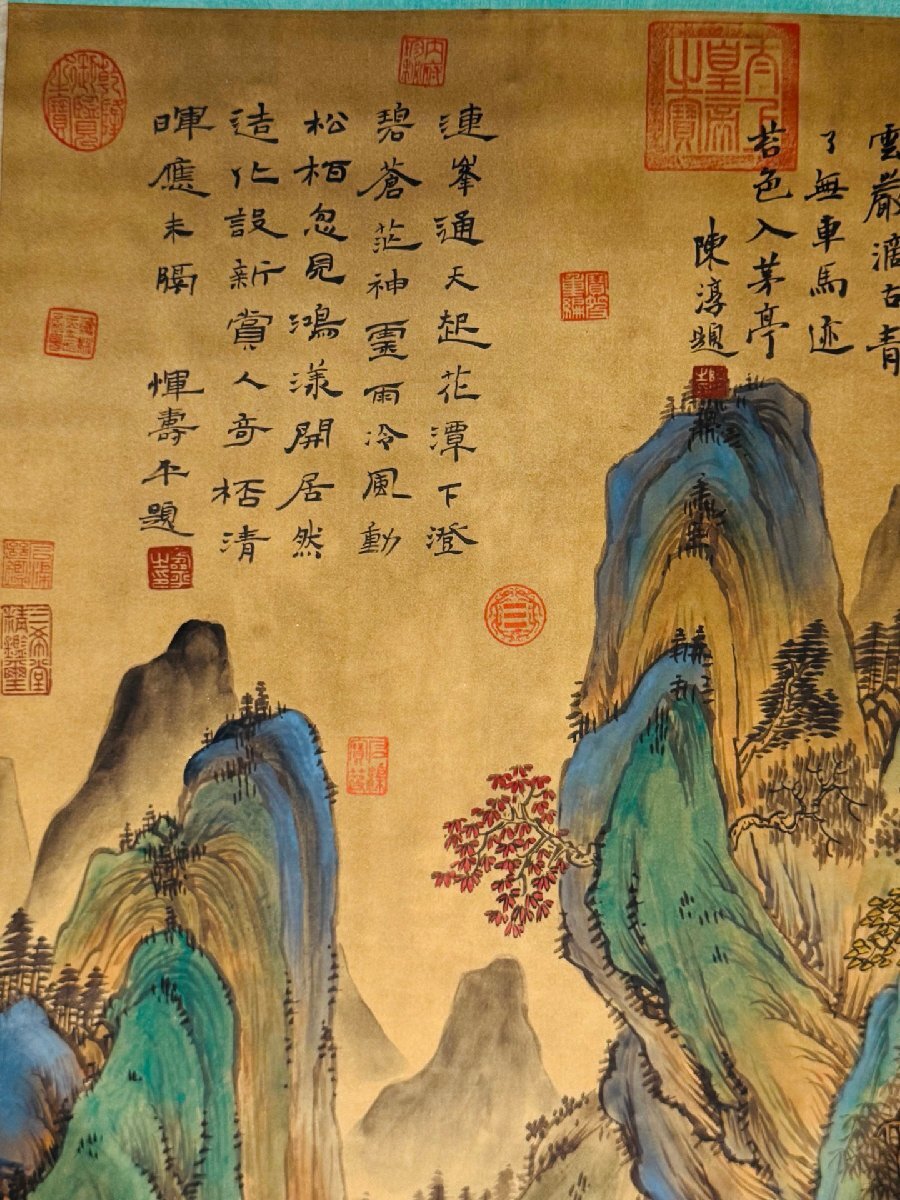 雲嚴滴古青
了無車馬迹
苔色入茅亭
陳淳題
漣峯通天起花潭下澄
碧蒼茫神靈雨冷風動
松栢忽見鴻漾開居然
造化設新賞人奇栝清
暉應未關
惲壽平題
乾隆御覽之寶
太上皇帝之寶
三希堂精鑑璽